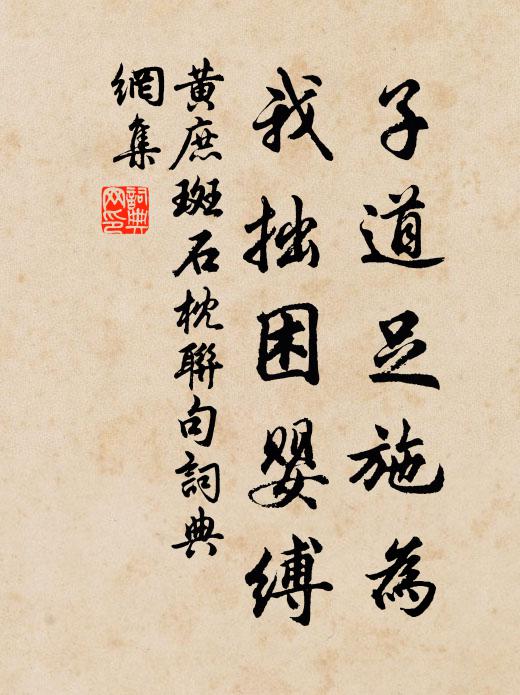 子道足施為
我拙困嬰縛
黃庶斑石枕聯句詞典
網集
詞典
网印